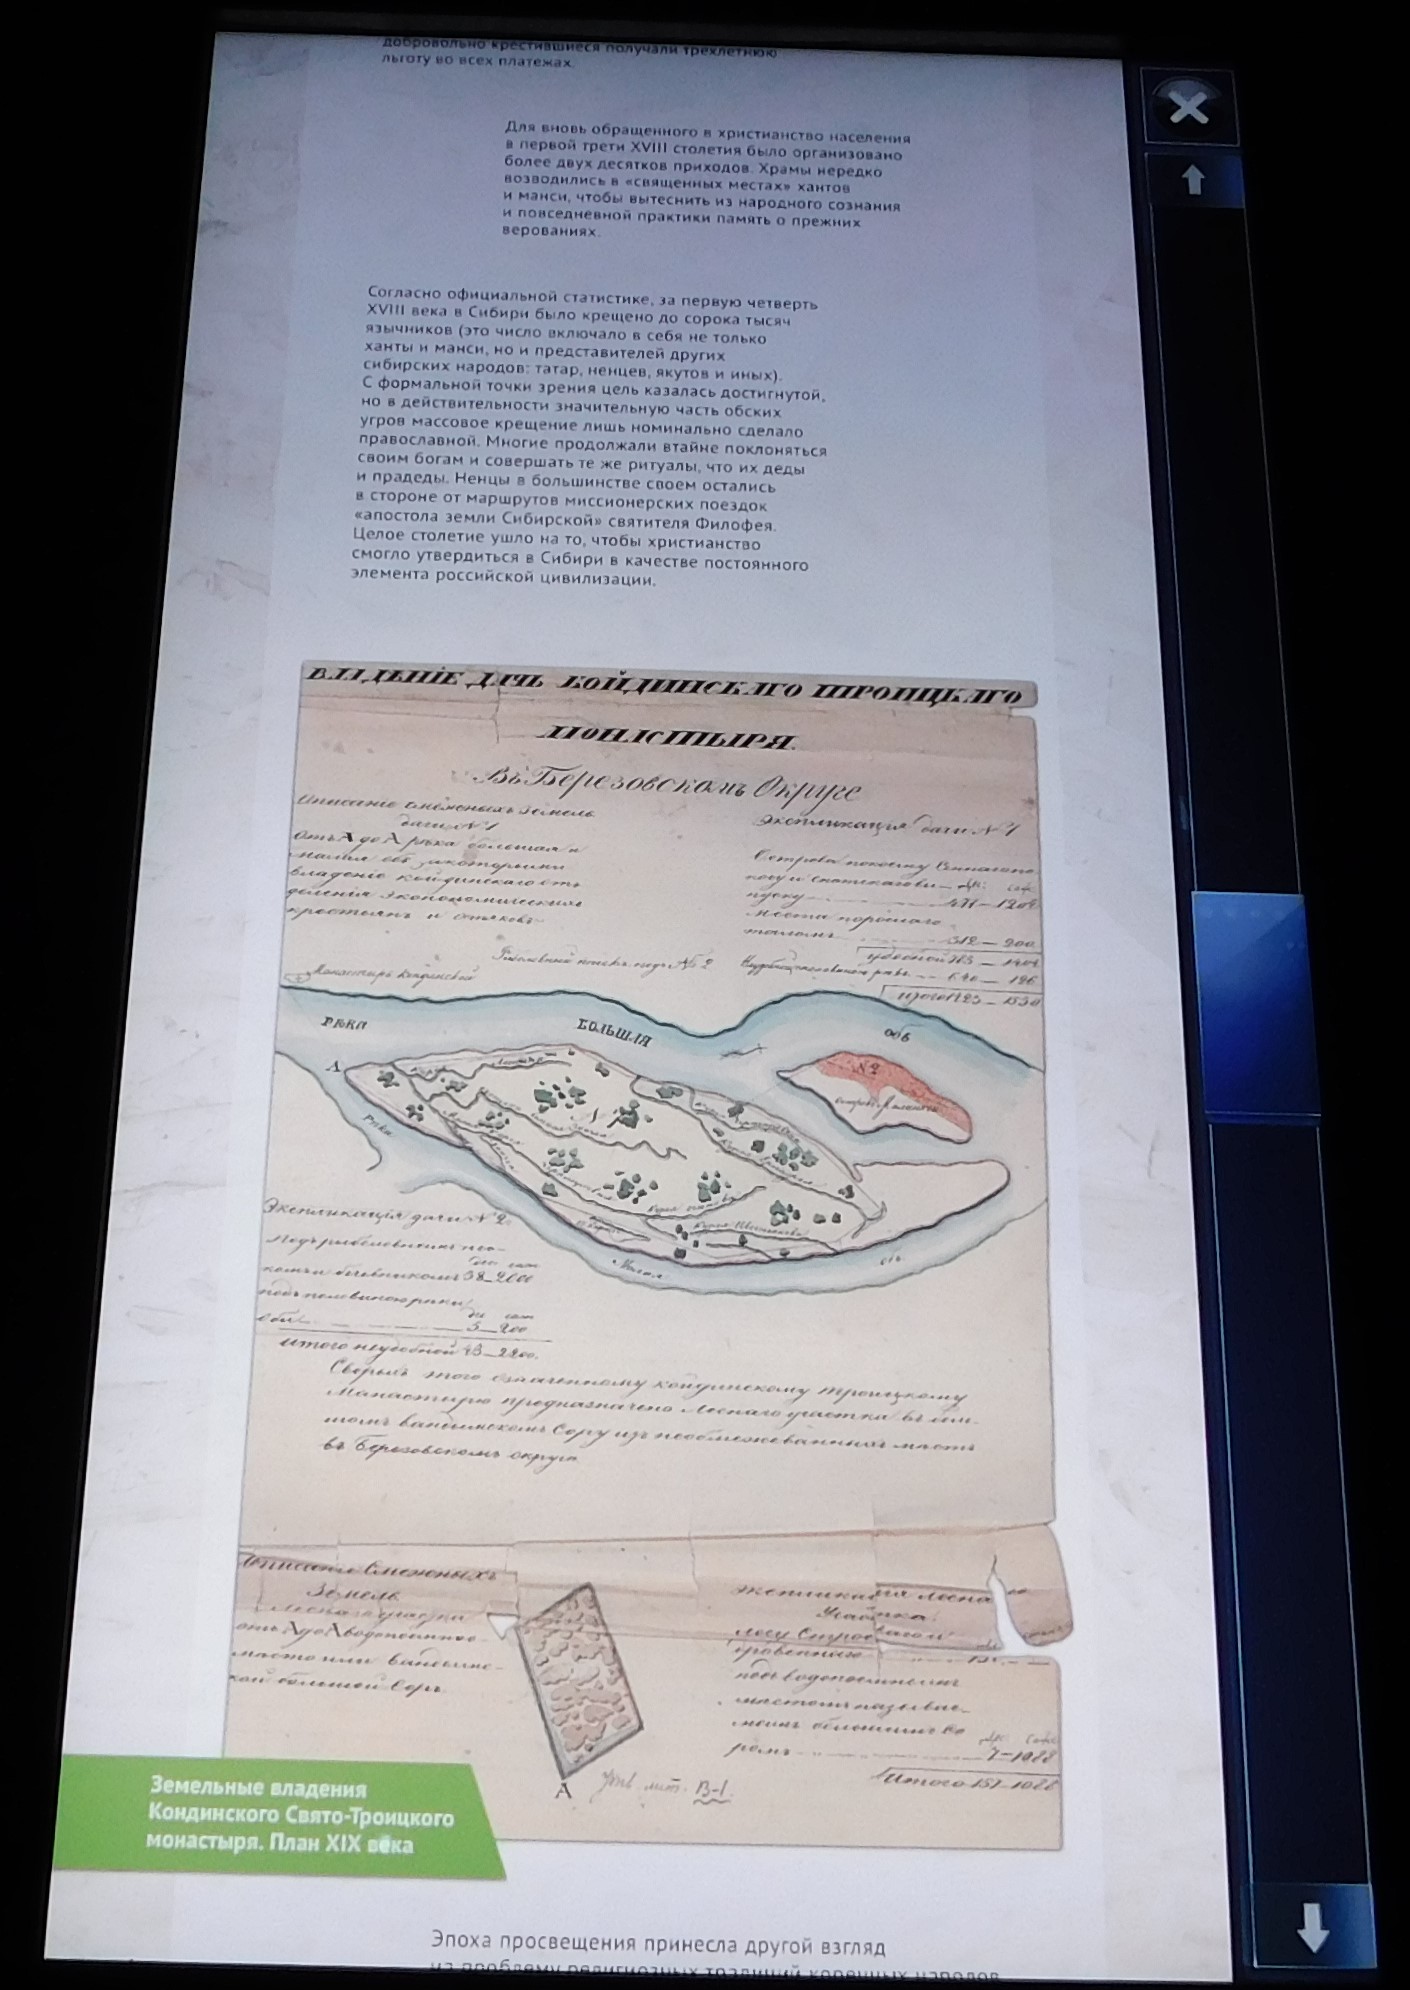 добровольно крестившиеся получали трехлетнюю
льготу во всех платежах.
Для вновь обращенного в христианство населения
в первой трети XVIII столетия было организовано
более двух десятков приходов. Храмы нередко
возводились в «священных местах» хантов
и манси, чтобы вытеснить из народного сознания
и повседневной практики память о прежних
верованиях.
Согласно официальной статистике, за первую четверть
XVIII века в Сибири было крещено до сорока тысяч
язычников (это число включало в себя не только
ханты и манси, но и представителей других
сибирских народов: татар, ненцев, якутов и иных).
С формальной точки зрения цель казалась достигнутой,
но в действительности значительную часть обских
угров массовое крещение лишь номинально сделало
православной. Многие продолжали втайне поклоняться
своим богам и совершать те же ритуалы, что их деды
и прадеды. Ненцы в большинстве своем остались
в стороне от маршрутов миссионерских поездок
«апостола земли Сибирской» святителя Филофея.
Целое столетие ушло на то, чтобы христианство
смогло утвердиться в Сибири в качестве постоянного
элемента российской цивилизации.
ВЛАДѢНІЕ ДАЧЬ КОЙДИНСКАГО ТРОИЦКАГО
МОНАСТЫРЯ.
Въ Березовскомъ Округе
Описаніе смежныхъ земель
дачи №1
Экспликація дачи №1
отъ А до А рѣка большая и
малая обь за которыми
владеніе койдинскаго отъ
деленія экономическихъ
крестьянъ и
471 — 1204
места поросшаго
312 — 200
640 — 126
Монастырь Кондинский
РѢКА
БОЛЬШАЯ
обь
А
№ 2
рѣка
Малая
обь
Экспликація дачи № 2
38 — 2000
подъ половиною реки
оби
5 — 200
итого неудобной 43 — 2200.
Сверхъ этого означенному койдинскому троицкому
Манастырю предназначено Леснаго участка въ
въ Березовскомъ округе
Описаніе Смежныхъ
Земель
отъ А до А
место или
кой большой Соръ.
Экспликация
Участка.
лесу
подъ
местомъ называе-
моимъ
ромъ
7 — 1088
Итого 157 — 1088
А
В-1.
Земельные владения
Кондинского Свято-Троицкого
монастыря. План XIX века
Эпоха просвещения принесла другой взгляд
на проблему религиозных традиций коренных народов